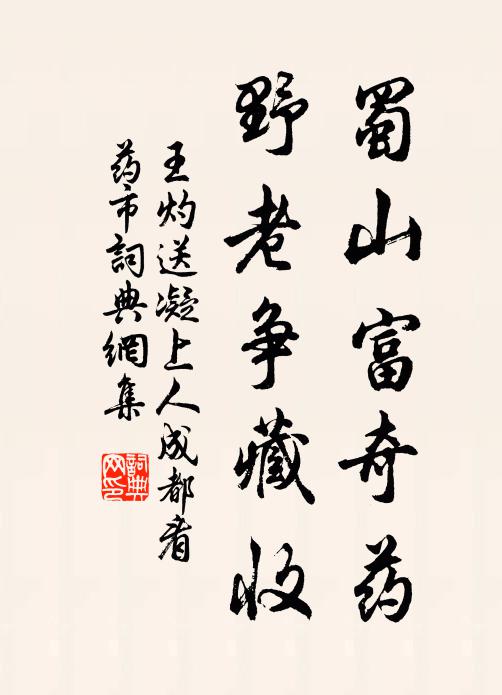 蜀山富奇药
野老争藏收
王灼送凝上人成都看
药市词典網集
詞典网印